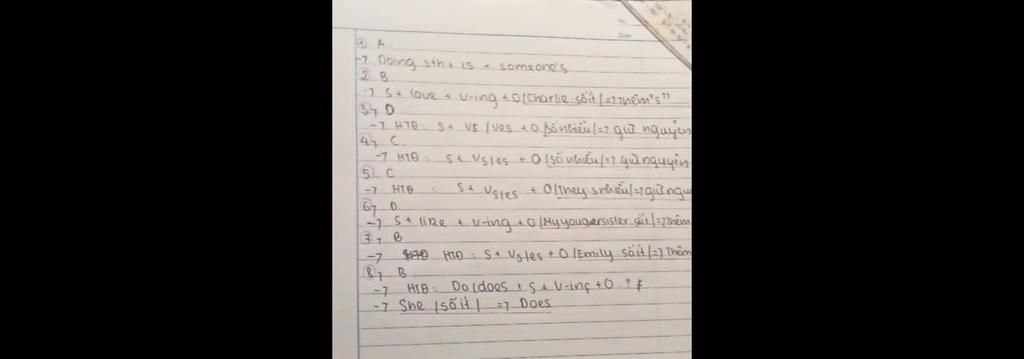 1 A
-7 Doing sth + is + someone's
2 B
-7 S + love + V-ing + O / Charlie số ít / =7 Thêm "s"
3, D
-7 HTĐ: S + Vs/Ves + O / số nhiều / =7 giữ nguyên
4, C
-7 HTĐ: S + Vs/es + O / số nhiều / =7 giữ nguyên
5. C
-7 HTĐ: S + Vs/es + O / They số nhiều / =7 giữ ngu
6, D
-7 S + like + V-ing + O / My younger sister số ít / =7 Thêm
7, B
-7 HTĐ: S + Vs/es + O / Emily số ít / =7 Thêm
8, B
-7 HTĐ: Do/does + S + V-inf + O ?
-7 She / số ít / =7 Does